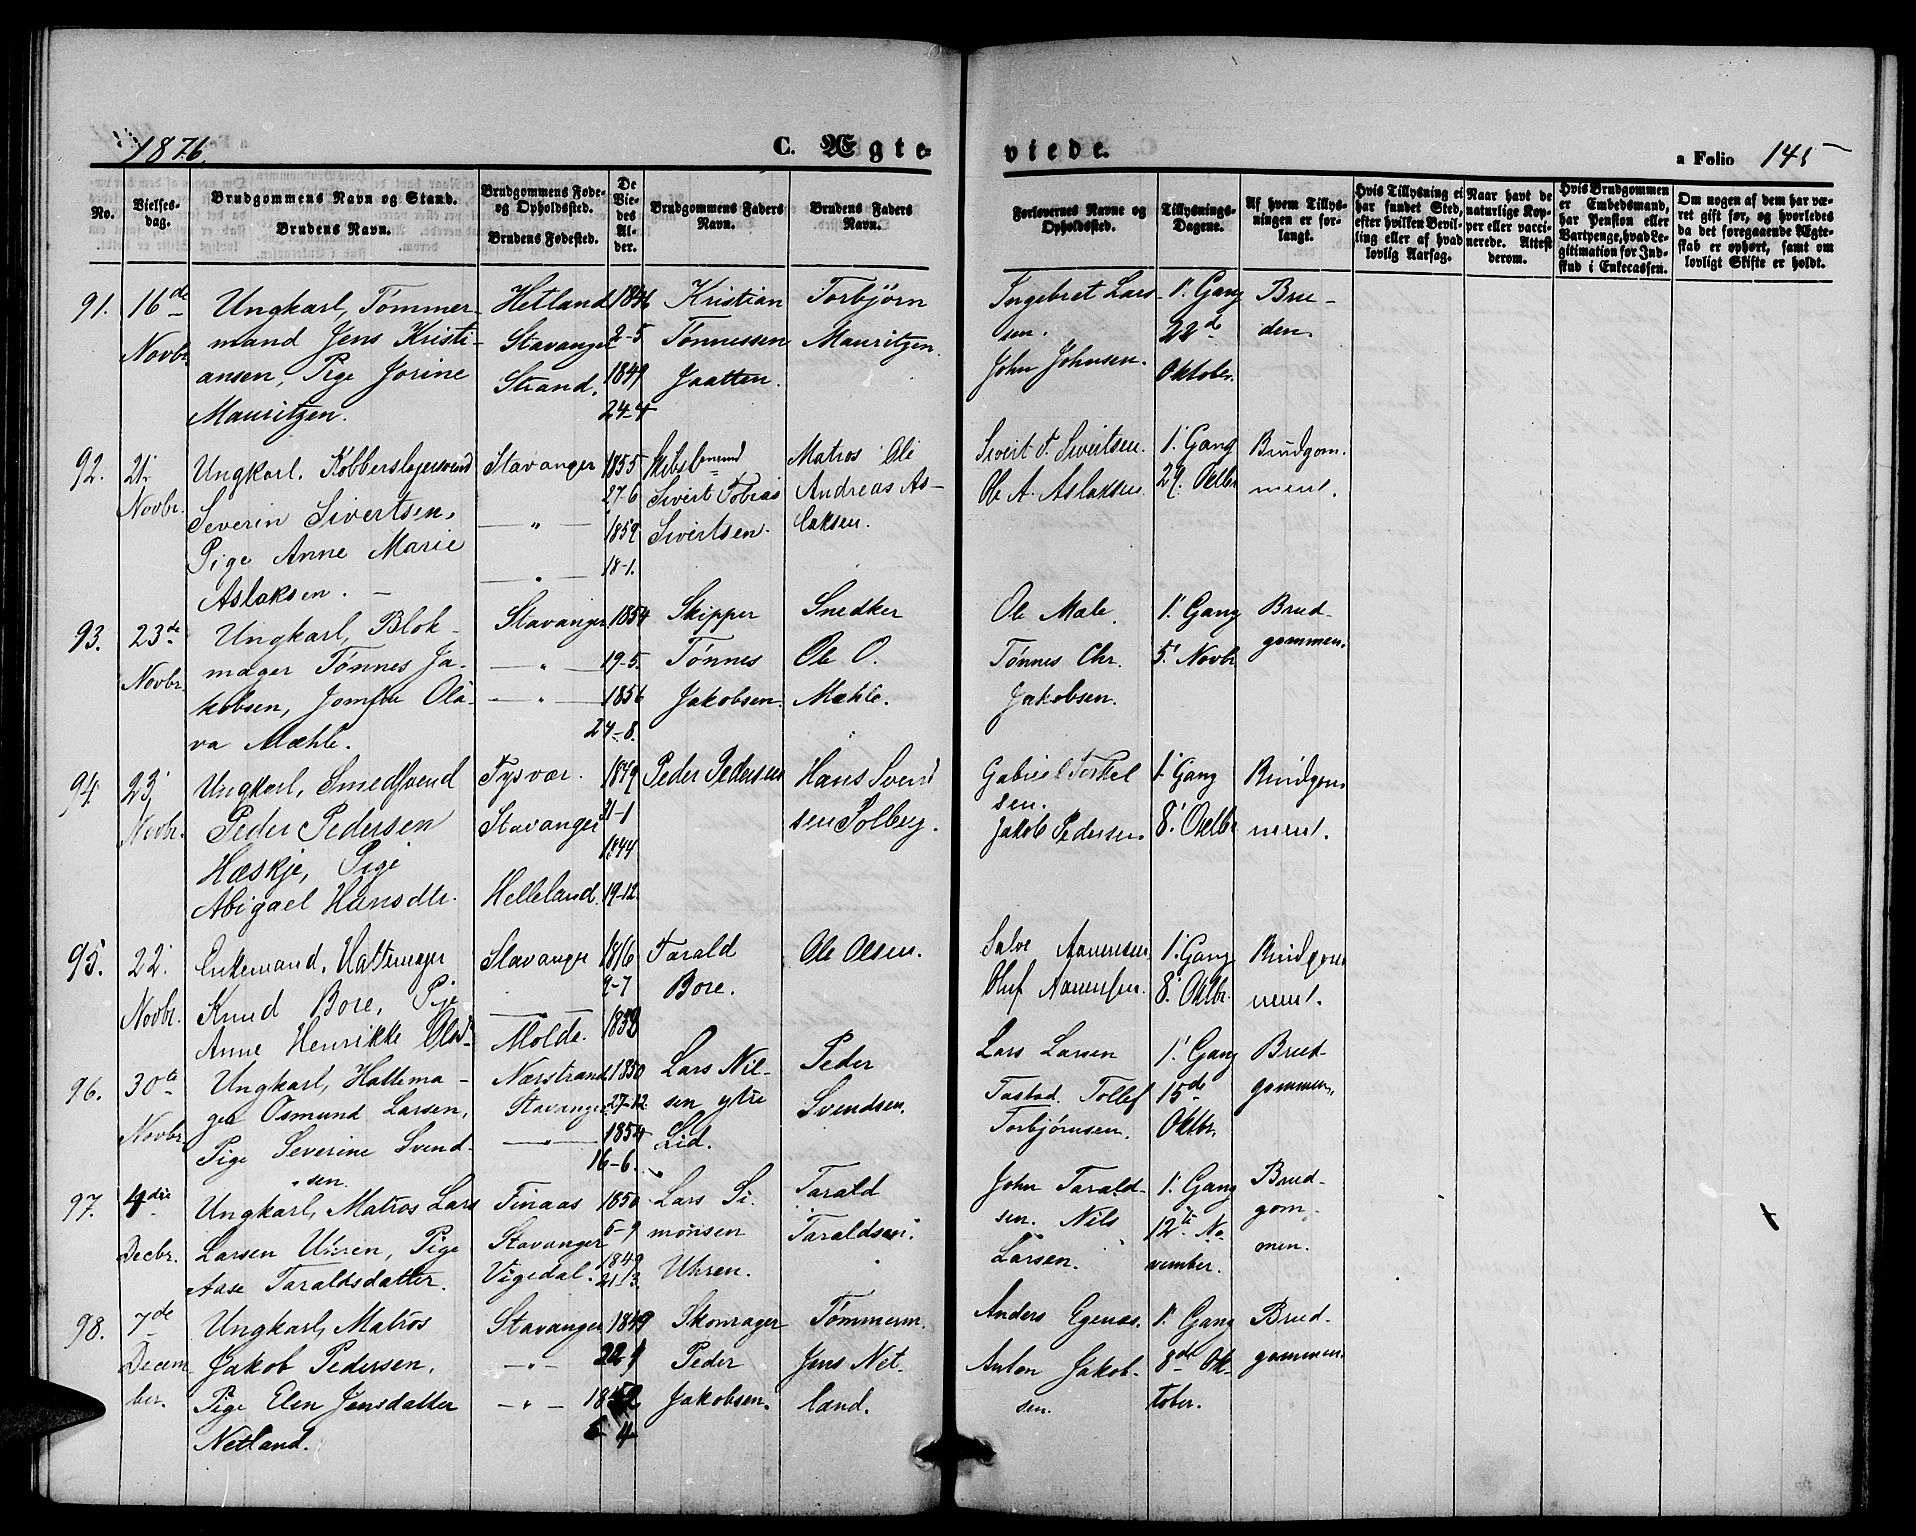 1876.
C. Ægte-
viede.
a Folio 145
No.
Vielses-
dag.
Brudgommens Navn og Stand.
Brudens Navn.
Brudgommens Føde-
og Opholdssted.
Brudens Fødested.
De
Vie-
des
Al-
der.
Brudgommens Faders
Navn.
Brudens Faders
Navn.
Forlovernes Navne og
Opholdssted.
Tillysnings-
Dagene.
Af hvem Tillys-
ningen er for-
langt.
Hvis Tillysning ei
har fundet Sted,
efter hvilken Bevil-
ling eller af hvad
lovlig Aarsag.
Naar havt de
naturlige Kop-
per eller vacci-
nerede. Attest
derom.
Hvis Brudgommen
er Embedsmand,
har Pension eller
Vartpenge, hvad Le-
gitimation for Ind-
skud i Enkecassen.
Om nogen af dem har væ-
ret gift før, og hvorledes
da det foregaaende Ægte-
skab er ophørt, samt om
lovligt Skifte er holdt.
91.
16de
Novbr.
Ungkarl, Tømmer-
mand Jens Kristi-
ansen, Pige Jorine
Mauritzen.
Hetland
Stavanger
Strand.
1846
2-5
1849
24-4
Kristian
Tønnessen
Jaatten.
Torbjørn
Mauritzen.
Ingebret Lars-
sen.
John Johnsen.
1' Gang
22d
Oktober.
Bru-
den.
92.
21'
Novbr.
Ungkarl. Kobberslagersvend
Severin Sivertsen,
Pige Anne Marie
Aslaksen.
Stavanger
— " —
— " —
1855
27-6
1859
18-1.
Sivert Tobias
Sivertsen.
Matros Ole
Andreas As-
laksen.
Sivert T. Sivertsen.
Ole A. Aslaksen
1' Gang
29' Oktbr
Brudgom-
ment.
93.
23de
Novbr.
Ungkarl, Blok-
mager Tønnes Ja-
kobsen, Jomfru Ola-
va Mæhle.
Stavanger
— " —
— " —
1854
19-5.
1856
24-8.
Skipper
Tønnes
Jakobsen.
Snedker
Ole O.
Mæhle.
Ole Mæle.
Tønnes Chr.
Jakobsen.
1' Gang
5' Novbr
Brud-
gommen.
94.
23'
Novbr.
Ungkarl, Smedsvend
Peder Pedersen
Hæskje, Pige
Abigael Hansdtr.
Tysvær.
Stavanger
Helleland.
1849
31-1
1844
19-12.
Peder Pedersen
Hans Svend
sen Solberg.
Gabriel Torkel
sen.
Jakob Pedersen
1' Gang
8' Oktbr
Brudgom
ment.
95.
22'
Novbr.
Enkemand, Hattemager
Knud Bore, Pige
Anne Henrikke Olsd-
Stavanger
Molde.
1816
2-7
1832
Tarald
Bore.
Ole Olsen.
Salve Aanensen
Oluf Aanensen.
1' Gang
8' Oktbr.
Brudgom
ment.
96.
30te
Novbr
Ungkarl, Hattema-
ger Osmund Larsen,
Pige Severine Svend-
sen.
Nærstrand
Stavanger
— " —
1850
27-12.
1854
16-6.
Lars Nil-
sen ytre
Lid.
Peder
Svendsen.
Lars Larsen
Tastad. Tollef
Torbjørnsen.
1' Gang
15de
Oktbr.
Brud-
gommen.
97.
4die
Decbr.
Ungkarl, Matros Lars
Larsen Uhren, Pige
Aase Taraldsdatter.
Finaas
Stavanger
Vigedal.
1850
5-9
1849
21-3.
Lars Si-
monsen
Uhren.
Tarald
Taraldsen.
John Tarald-
sen. Nils
Larsen.
1' Gang
12te No-
vember.
Brud-
gom-
men.
98.
7de
Decem
ber.
Ungkarl, Matros
Jakob Pedersen,
Pige Elen Jensdatter
Netland.
Stavanger
— " —
— " —
1849
22-1
1852
5-4
Skomager
Peder
Jakobsen.
Tømmerm.
Jens Net-
land.
Anders Egenæs.
Anton Jakob-
sen.
1' Gang
8de Ok-
tober.
Brud-
gommen.